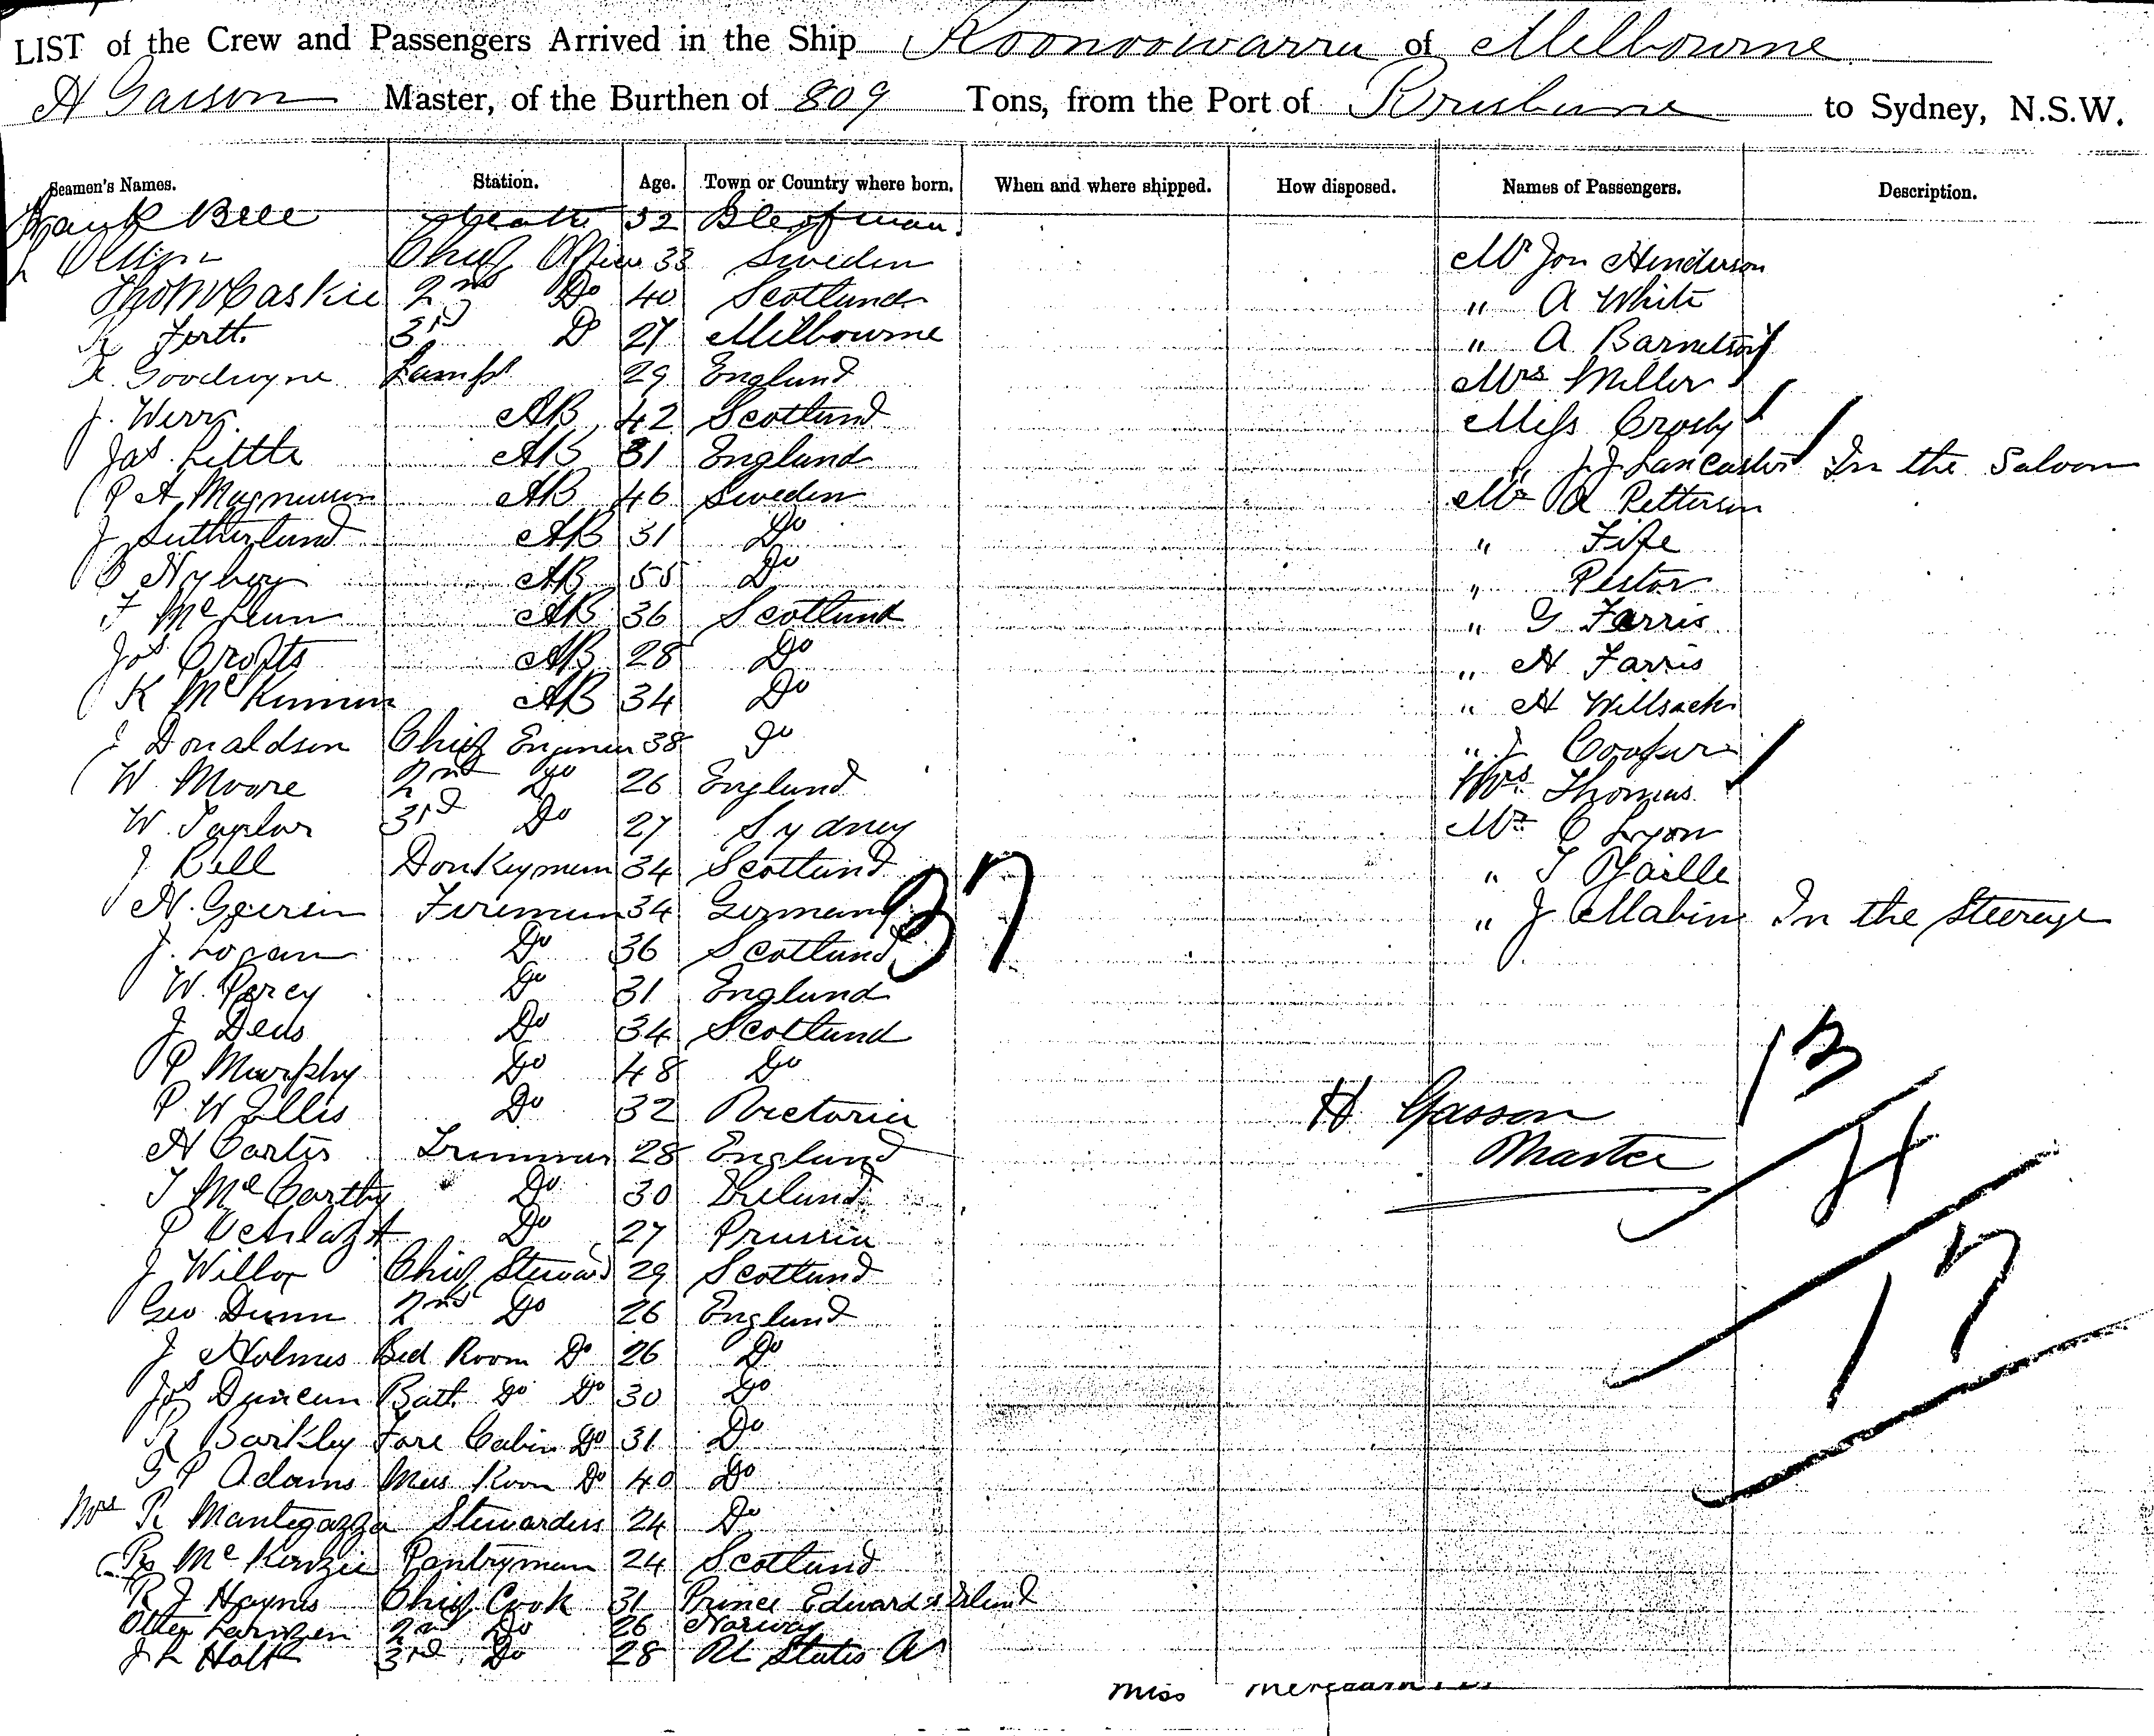 LIST of the Crew and Passengers Arrived in the Ship Konoowarra of Melbourne
H Gasson Master, of the Burthen of 809 Tons, from the Port of Brisbane to Sydney, N.S.W.
Seamen's Names. Station. Age. Town or Country where born. When and where shipped. How disposed. Names of Passengers. Description.
Frank Bell 32
Chief Officer 33 Sweden Mr Jon Henderson
2nd Do 40 Scotland " A White
3rd Do 27 Melbourne " A Barnetson
Goodwyne Lamps 29 England Mrs Miller
J. Werr AB 42 Scotland Miss Crosby
Jas Little AB 31 England " J. J. Lancaster In the Saloon
P A Magnusson AB 46 Sweden Mr A Petterson
J Sutherland AB 31 Do " Fife
Nyberg AB 55 Do " Pestor
F McLean AB 36 Scotland " G Farris
Jos Crofts AB 28 Do " H Farris
K McKinnon AB 34 Do " H Willsack
J Donaldson Chief Engineer 38 Do " J Cooper
W Moore 2nd Do 26 England Mrs Thomas
W. Taylor 3rd Do 27 Sydney Mr C Lyon
J Bell Donkeyman 34 Scotland " T
H. Fireman 34 Germany 37 " J Mabin In the Steerage
J. Logan Do 36 Scotland
W. Percy Do 31 England
J Deas Do 34 Scotland 13
P Murphy Do 48 Do
P W Ellis Do 32 Victoria H Gasson
H Carter Trimmer 28 England Master 4
T McCarthy Do 30 Ireland
P Do 27 Prussia
J Willox Chief Steward 29 Scotland 17
Geo Dunn 2nd Do 26 England
J Holmes Bed Room Do 26 Do
Jos Duncan Bath Do Do 30 Do
R Barkley Fore Cabin Do 31 Do
G P Adams Mess Room Do 40 Do
Mrs R Mantegazza Stewardess 24 Do
McKenzie Pantryman 24 Scotland
R J Haynes Chief Cook 31 Prince Edwards Island
2nd Do 26 Norway
J L Holt 3rd Do 28 Ut States A
Miss